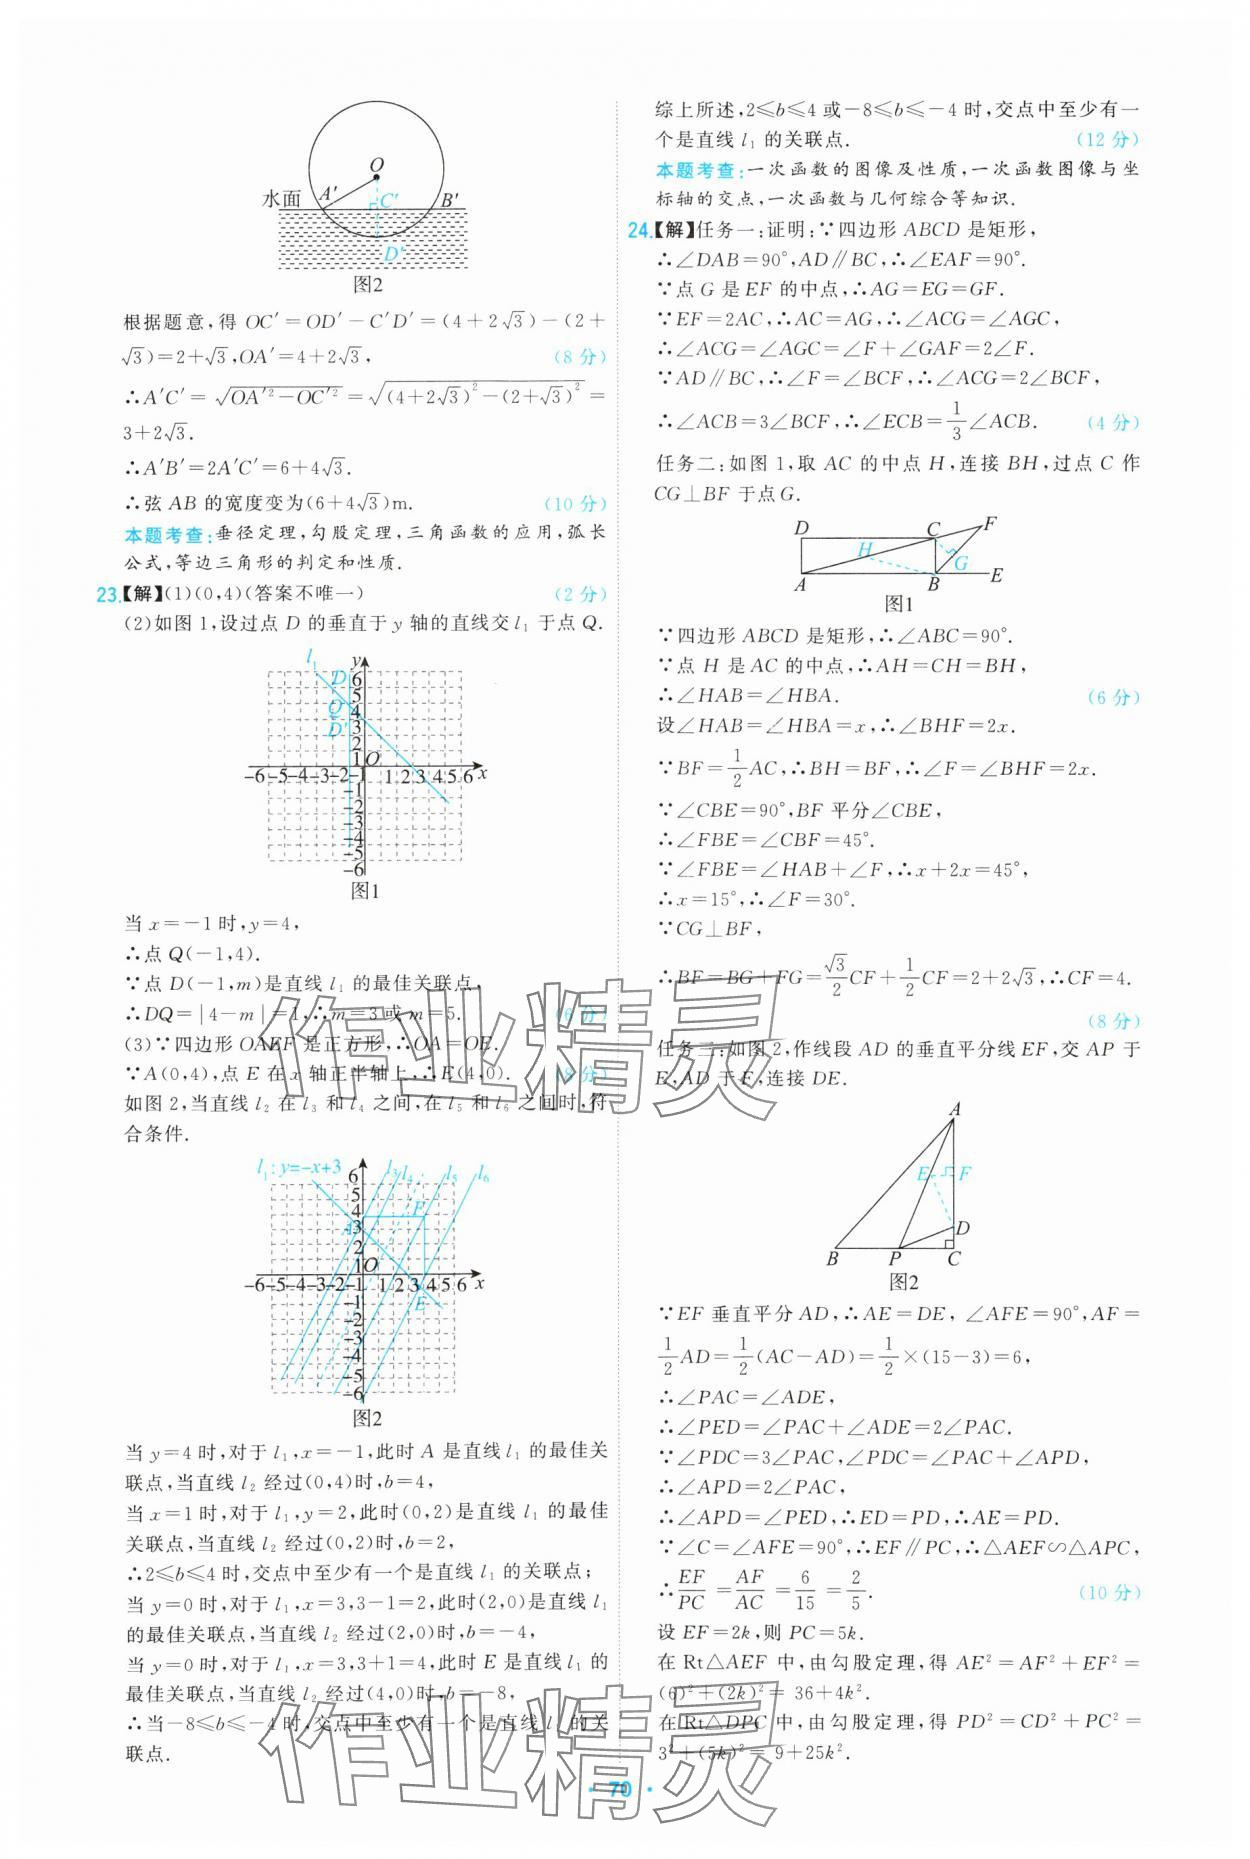 O
水面 A′ C′ B′
D′
图2
根据题意,得 OC′=OD′-C′D′=(4+2√3)-(2+
√3)=2+√3,OA′=4+2√3, (8 分)
∴A′C′=√(OA′²-OC′²)=√((4+2√3)²-(2+√3)²)=
3+2√3.
∴A′B′=2A′C′=6+4√3.
∴弦 AB 的宽度变为(6+4√3)m. (10 分)
本题考查:垂径定理,勾股定理,三角函数的应用,弧长
公式,等边三角形的判定和性质.
23.【解】(1)(0,4)(答案不唯一) (2 分)
(2)如图 1,设过点 D 的垂直于 y 轴的直线交 l₁ 于点 Q.
l₁ y
D 6
5
Q 4
3
D′
2
1 O
-6-5-4-3-2-1 1 2 3 4 5 6 x
-1
-2
-3
-4
-5
-6
图1
当 x=-1 时,y=4,
∴点 Q(-1,4).
∵点 D(-1,m)是直线 l₁ 的最佳关联点,
∴DQ=|4-m|=1,∴m=3 或 m=5. (6 分)
(3)∵四边形 OAEF 是正方形,∴OA=OE.
∵A(0,4),点 E 在 x 轴正半轴上,∴E(4,0). (8 分)
如图 2,当直线 l₂ 在 l₃ 和 l₄ 之间,在 l₅ 和 l₆ 之间时,符
合条件.
l₁:y=-x+3 6 l₃ l₄ l₅ l₆
5
4 F
A 3
2
1 O
-6-5-4-3-2-1 1 2 3 4 5 6 x
-1 E
-2
-3
-4
-5
-6
图2
当 y=4 时,对于 l₁,x=-1,此时 A 是直线 l₁ 的最佳关
联点,当直线 l₂ 经过(0,4)时,b=4,
当 x=1 时,对于 l₁,y=2,此时(0,2)是直线 l₁ 的最佳
关联点,当直线 l₂ 经过(0,2)时,b=2,
∴2≤b≤4 时,交点中至少有一个是直线 l₁ 的关联点;
当 y=0 时,对于 l₁,x=3,3-1=2,此时(2,0)是直线 l₁
的最佳关联点,当直线 l₂ 经过(2,0)时,b=-4,
当 y=0 时,对于 l₁,x=3,3+1=4,此时 E 是直线 l₁ 的
最佳关联点,当直线 l₂ 经过(4,0)时,b=-8,
∴当-8≤b≤-4 时,交点中至少有一个是直线 l₁ 的关
联点.
综上所述,2≤b≤4 或-8≤b≤-4 时,交点中至少有一
个是直线 l₁ 的关联点. (12 分)
本题考查:一次函数的图像及性质,一次函数图像与坐
标轴的交点,一次函数与几何综合等知识.
24.【解】任务一:证明:∵四边形 ABCD 是矩形,
∴∠DAB=90°,AD∥BC,∴∠EAF=90°.
∵点 G 是 EF 的中点,∴AG=EG=GF.
∵EF=2AC,∴AC=AG,∴∠ACG=∠AGC,
∴∠ACG=∠AGC=∠F+∠GAF=2∠F.
∵AD∥BC,∴∠F=∠BCF,∴∠ACG=2∠BCF,
∴∠ACB=3∠BCF,∴∠ECB=1/3∠ACB. (4 分)
任务二:如图 1,取 AC 的中点 H,连接 BH,过点 C 作
CG⊥BF 于点G.
D C F
H
G
A B E
图1
∵四边形 ABCD 是矩形,∴∠ABC=90°.
∵点 H 是 AC 的中点,∴AH=CH=BH,
∴∠HAB=∠HBA. (6 分)
设∠HAB=∠HBA=x,∴∠BHF=2x.
∵BF=1/2AC,∴BH=BF,∴∠F=∠BHF=2x.
∵∠CBE=90°,BF 平分∠CBE,
∴∠FBE=∠CBF=45°.
∵∠FBE=∠HAB+∠F,∴x+2x=45°,
∴x=15°,∴∠F=30°.
∵CG⊥BF,
∴BF=BG+FG=√3/2CF+1/2CF=2+2√3,∴CF=4.
(8 分)
任务三:如图 2,作线段 AD 的垂直平分线 EF,交 AP 于
E,AD 于 F,连接 DE.
A
E F
D
B P C
图2
∵EF 垂直平分 AD,∴AE=DE, ∠AFE=90°,AF=
1/2AD=1/2(AC-AD)=1/2×(15-3)=6,
∴∠PAC=∠ADE,
∴∠PED=∠PAC+∠ADE=2∠PAC.
∵∠PDC=3∠PAC,∠PDC=∠PAC+∠APD,
∴∠APD=2∠PAC,
∴∠APD=∠PED,∴ED=PD,∴AE=PD.
∵∠C=∠AFE=90°,∴EF∥PC,∴△AEF∽△APC,
∴EF/PC=AF/AC=6/15=2/5. (10 分)
设 EF=2k,则 PC=5k.
在 Rt△AEF 中,由勾股定理,得 AE²=AF²+EF²=
(6)²+(2k)²=36+4k².
在 Rt△DPC 中,由勾股定理,得 PD²=CD²+PC²=
3²+(5k)²=9+25k².
· 70 ·
作业精灵
作业精灵